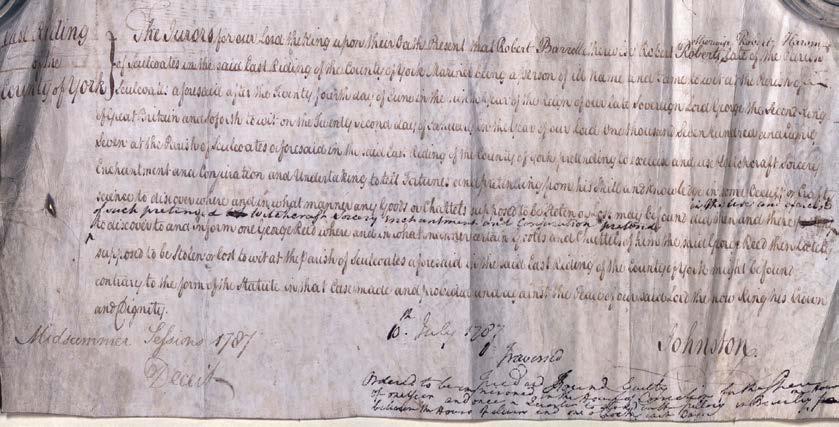 East Riding
of the
County of York
otherwise Robert Hannon
The Jurors for our Lord the King upon their Oath Present that Robert Barrell otherwise Robert Roberts Late of the Parish
of Sculcoates in the said East Riding of the County of York Mariner being a Person of ill Name and Fame to wit at the Parish of
Sculcoates aforesaid after the Twenty fourth day of June in the year of the reign of our late Sovereign Lord George the Second King
of Great Britain and so forth to wit on the Twenty second day of January in the Year of our Lord One thousand Seven hundred and eighty
Seven at the Parish of Sculcoates aforesaid in the said East Riding of the County of York pretending to exercise and use Witchcraft Sorcery
Enchantment and Conjuration and Undertaking to tell Fortunes and pretending from his Skill and Knowledge in some Occult or Crafty
Science to discover where and in what manner any Goods or Chattels supposed to be Stolen or lost may be found did then and there
in the use and exercise
of such pretended Witchcraft Sorcery inchantment and Conjuration pretend
to discover to and inform one George Reed where and in what manner certain Goods and Chattels of him the said George Reed then lately
supposed to be Stolen or lost to wit at the Parish of Sculcoates aforesaid in the said East Riding of the County of York might be found
contrary to the form of the Statute in that Case made and provided and against the Peace of our said Lord the now King his Crown
and Dignity.
Midsummer Sessions 1787
10th July 1787
Traversed
Johnston.
Deceit
Tried and Found Guilty
Ordered to be imprisoned in the House of Correction for the Space
of one year and once in a Quarter to stand in the pillory in Beverley
between the Hours of eleven and one